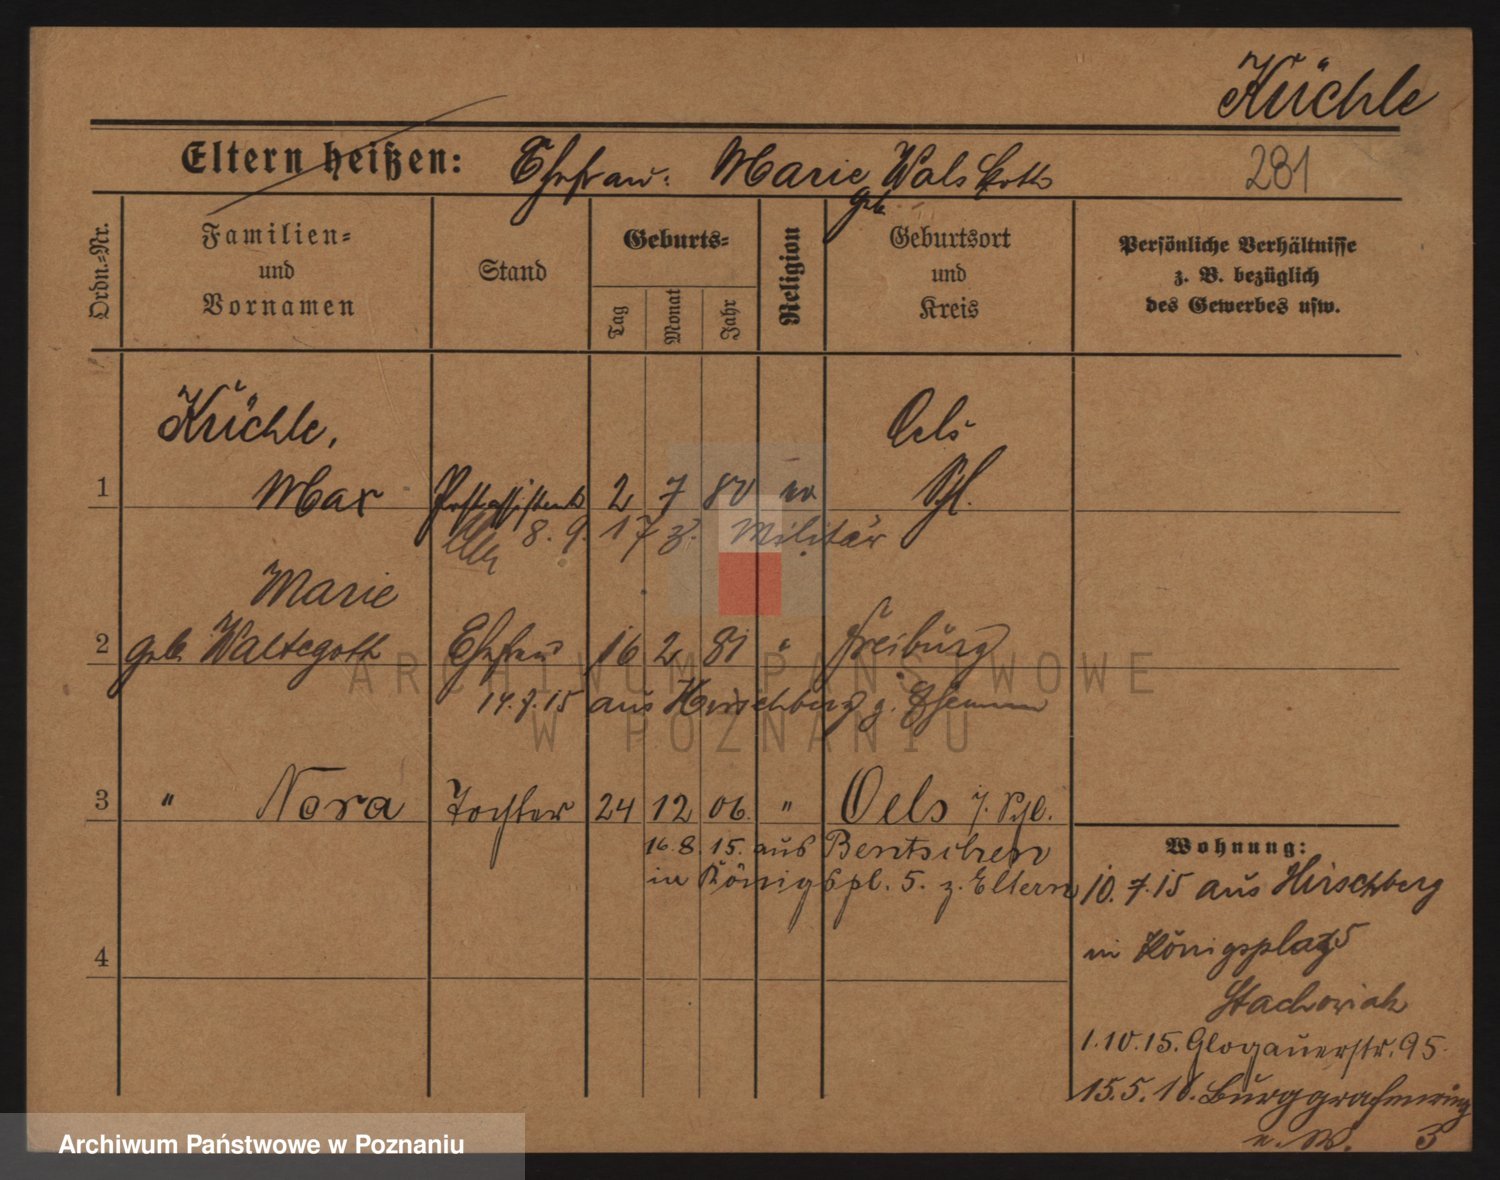 Küchle
Eltern heißen: Ehefrau: Marie geb.
281
Ordn.=Nr.
Familien=
und
Vornamen
Stand
Geburts=
Tag
Monat
Jahr
Religion
Geburtsort
und
Kreis
Persönliche Verhältnisse
z. B. bezüglich
des Gewerbes usw.
Küchle,
Oels
1 Max Postassistent 2 7 80 ev Schl.
8. 9. 17 z. Militär
Marie
2 geb. Waltegott Ehefrau 16 2 81 " Freiburg
14.7.15 aus Hirschberg z. Ehemann
3 " Nora Tochter 24 12 06 " Oels i. Schl.
16. 8. 15. aus Bentschen
in Königspl. 5. z. Eltern
4
Wohnung:
10. 7. 15 aus Hirschberg
in Königsplatz 5
Stachowiak
1. 10. 15. Glogauerstr. 95.
15. 5. 18. Burggrafenring
3
ARCHIWUM PAŃSTWOWE
W POZNANIU
Archiwum Państwowe w Poznaniu